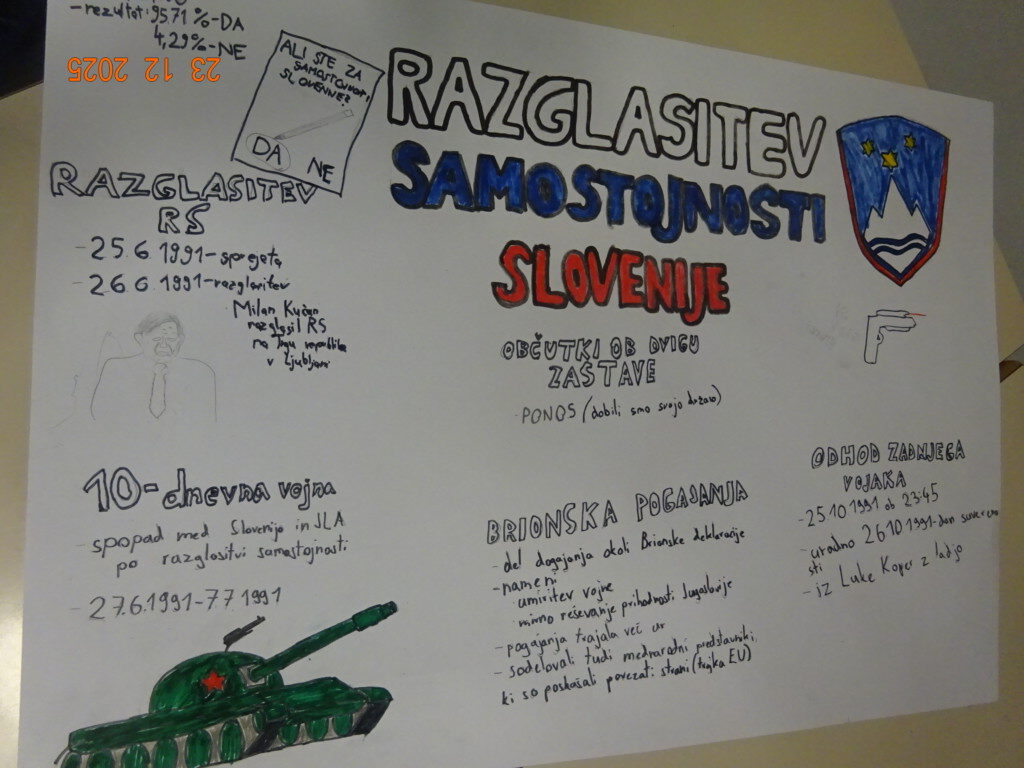 - rezultat: 95,71 %-DA
4,29%-NE
23 12 2025
ALI STE ZA
SAMOSTOJNOST
SLOVENIJE?
DA
NE
RAZGLASITEV
SAMOSTOJNOSTI
SLOVENIJE
RAZGLASITEV
RS
- 25.6 1991-sprejeta
- 26 6 1991-razglasitev
Milan Kučan
razglasil RS
na Trgu republike
v Ljubljani
OBČUTKI OB DVIGU
ZASTAVE
- PONOS (dobili smo svojo državo)
10-dnevna vojna
- spopad med Slovenijo in JLA
po razglasitvi samostojnosti
- 27.6.1991-7.7 1991
BRIONSKA POGAJANJA
- del dogajanja okoli Brionske deklaracije
- nameni
umiritev vojne
mirno reševanje prihodnosti Jugoslavije
- pogajanja trajala več ur
- sodelovali tudi mednarodni predstavniki,
ki so poskušali povezati strani (trojka EU)
ODHOD ZADNJEGA
VOJAKA
- 25.10 1991 ob 23:45
- uradno 26 10 1991-dan suvereno
sti
- iz Luke Koper z ladjo